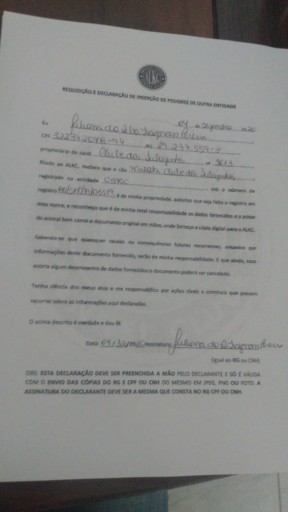 REQUISIÇÃO E DECLARAÇÃO DE INSERÇÃO DE PEDIGREE DE OUTRA ENTIDADE
de 20
Eu Juliana da Silva
CPF RG
proprietário do canil Clube do
filiado ao ALKC, declaro que o cão Clube do
registrado na entidade sob o número de
registro é de minha propriedade, autorizo que seja feito o registro em
meu nome, e reconheço que é de minha total responsabilidade os dados fornecidos e a posse
do animal bem como o documento original em mãos, onde forneço a cópia digital para o ALKC.
Sabendo-se que quaisquer causas ou consequências futuras recorrentes, oriundas por
informações deste documento fornecido, serão de minha responsabilidade. E que ainda, caso
ocorra algum descobrimento de dados fornecidos o documento poderá ser cancelado.
Tenho ciência dos meus atos e me responsabilizo por ações cíveis e criminais que possam
recorrer sobre as informações aqui declaradas.
O acima descrito é verdade e dou fé.
Data Assinatura Juliana da S
(igual ao RG ou CNH)
OBS: ESTA DECLARAÇÃO DEVE SER PREENCHIDA A MÃO PELO DECLARANTE E SÓ É VÁLIDA
COM O ENVIO DAS CÓPIAS DO RG E CPF OU CNH DO MESMO EM JPEG, PNG OU FOTO. A
ASSINATURA DO DECLARANTE DEVE SER A MESMA QUE CONSTA NO RG CPF OU CNH.